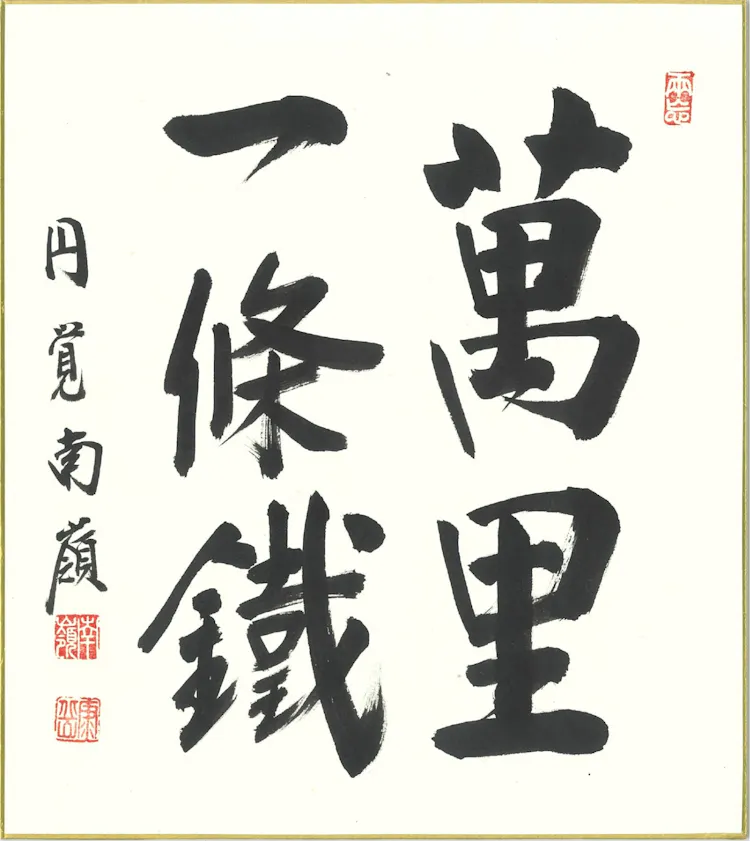 萬里
一條鐵
円覚南嶺
南嶺